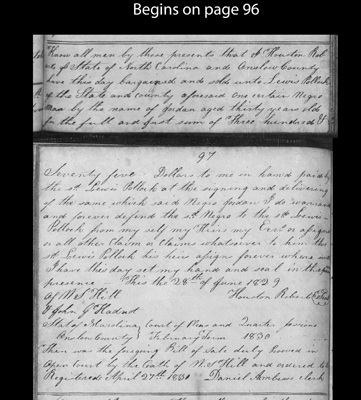 Begins on page 96
Know all men by these presents that I Houston Rob
erts of State of North Carolina and Onslow County
have this day bargained and sold unto Lewis Pollock
of the State and county aforesaid one certain Negro
man by the name of Jordan aged thirty years old
for the full and just sum of Three hundred &
97
Seventy five Dollars to me in hand paid by
the sd. Lewis Pollock at the signing and delivering
of the same which said Negro Jordan I do warrant
and forever defend the sd. Negro to the sd. Lewis
Pollock from my self my Heirs my Exrs. or assigns
or all other claim or claims whatsoever to him the
sd. Lewis Pollock his heirs assign forever where
I have this day set my hand and seal in the
presence This the 28th of June 1829
of W. S. Hill Houston Roberts Seal
J John G. Hadnot
State of N. Carolina Court of Pleas and Quarter Sessions
Onslow County February Term 1830
Then was the foregoing Bill of Sale duly proved in
Open Court by the oath of W. S. Hill and ordered to be
Registered April 27th 1830 Daniel Ambrose clerk